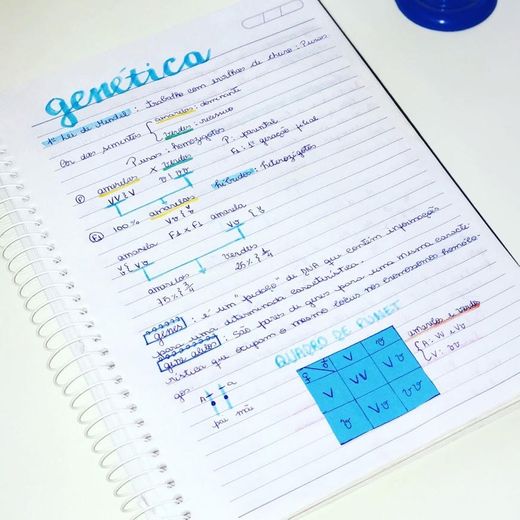 genética
1ª Lei de Mendel: trabalho com ervilhas de cheiro: Puras
Cor das sementes { amarelas: dominante
verdes: recessivo
Puras: homozigotos P: parental
F1: 1ª geração filial
P amarelas X verdes
VV { V vv { v
híbridos: heterozigotos
F1 100% amarelas
Vv { V v
F1 X F1
amarela amarela
V v { Vv Vv { V v
amarelas verdes
75% { 3/4 25% { 1/4
genes: é um "pedaço" de DNA que contém informação
para uma determinada característica.
gene alelos: São pares de genes para uma mesma caracte-
rística que ocupam o mesmo lócus nos cromossomos homólo-
gos.
A a
pai mãe
QUADRO DE PUNET
♀ ♂ V v
V VV Vv
v Vv vv
amarelo e verde
{ A: VV e Vv
V: vv